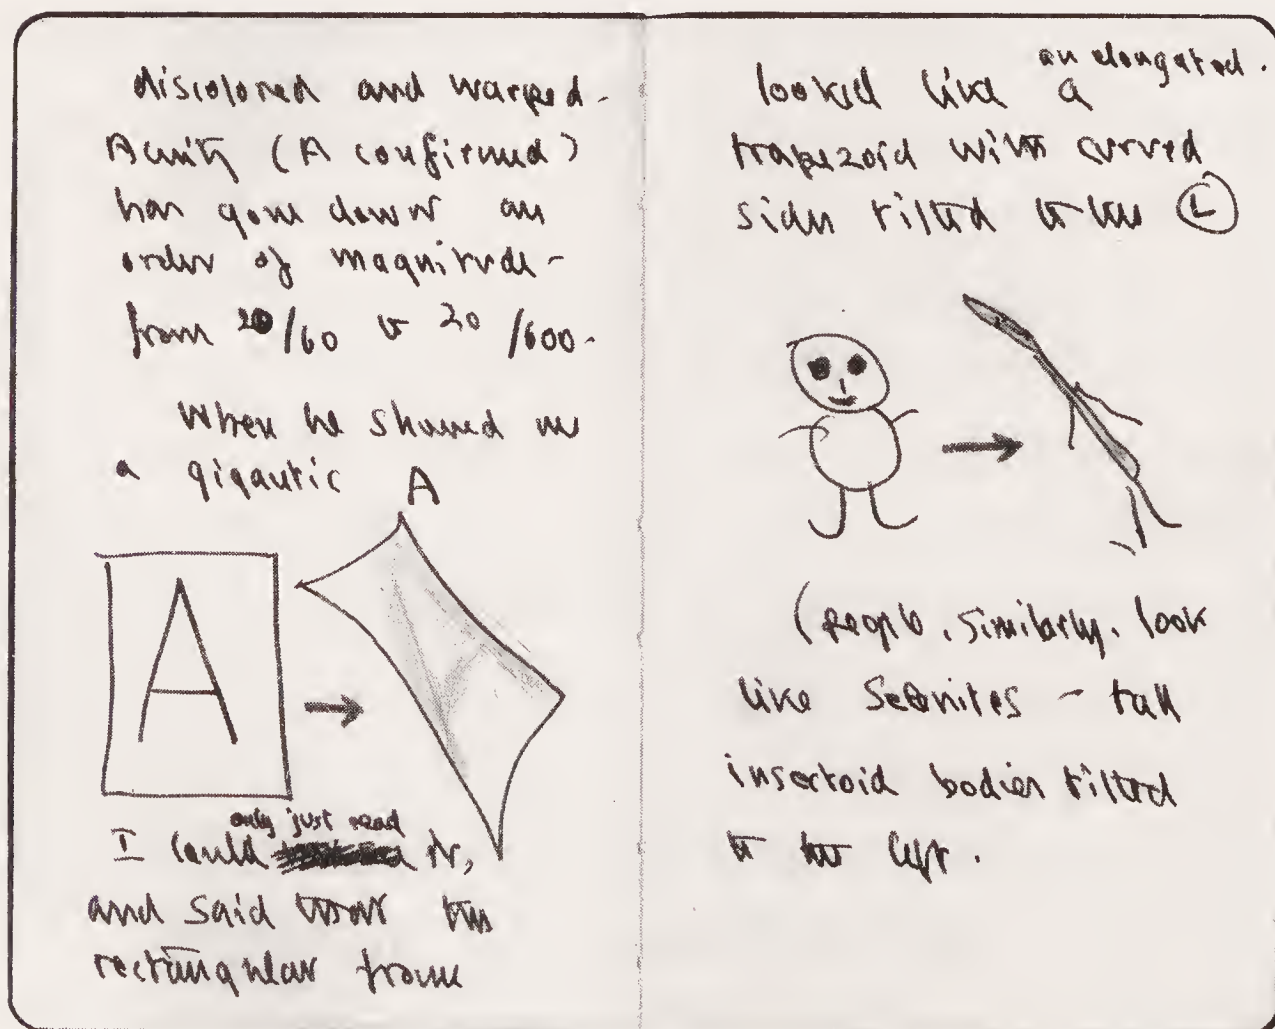 discolored and warped.
Acuity (A confirmed)
has gone down an
order of magnitude -
from 20/60 to 20/600.
When he showed me
a gigantic A
A
I could only just read it,
and said that the
rectangular frame
looked like a an elongated.
trapezoid with curved
sides tilted to the L
(people, similarly, look
like Selenites - tall
insectoid bodies tilted
to the left.